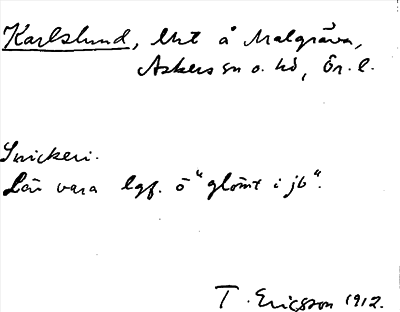 Karlslund, lht å Malgräva,
Askers sn o. hd, Ör. l.
Snickeri.
Lär vara lgf. o "glömt i jb".
T. Ericsson 1912.